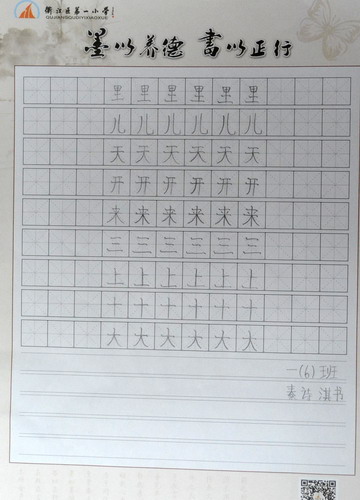 衢江区第一小学
QUJIANGQUDIYIXIAOXUE
墨以养德 书以正行
里里里里里里
儿儿儿儿儿儿
天天天天天天
开开开开开开
来来来来来来
三三三三三三
上上上上上上
十十十十十十
大大大大大大
一(6)班